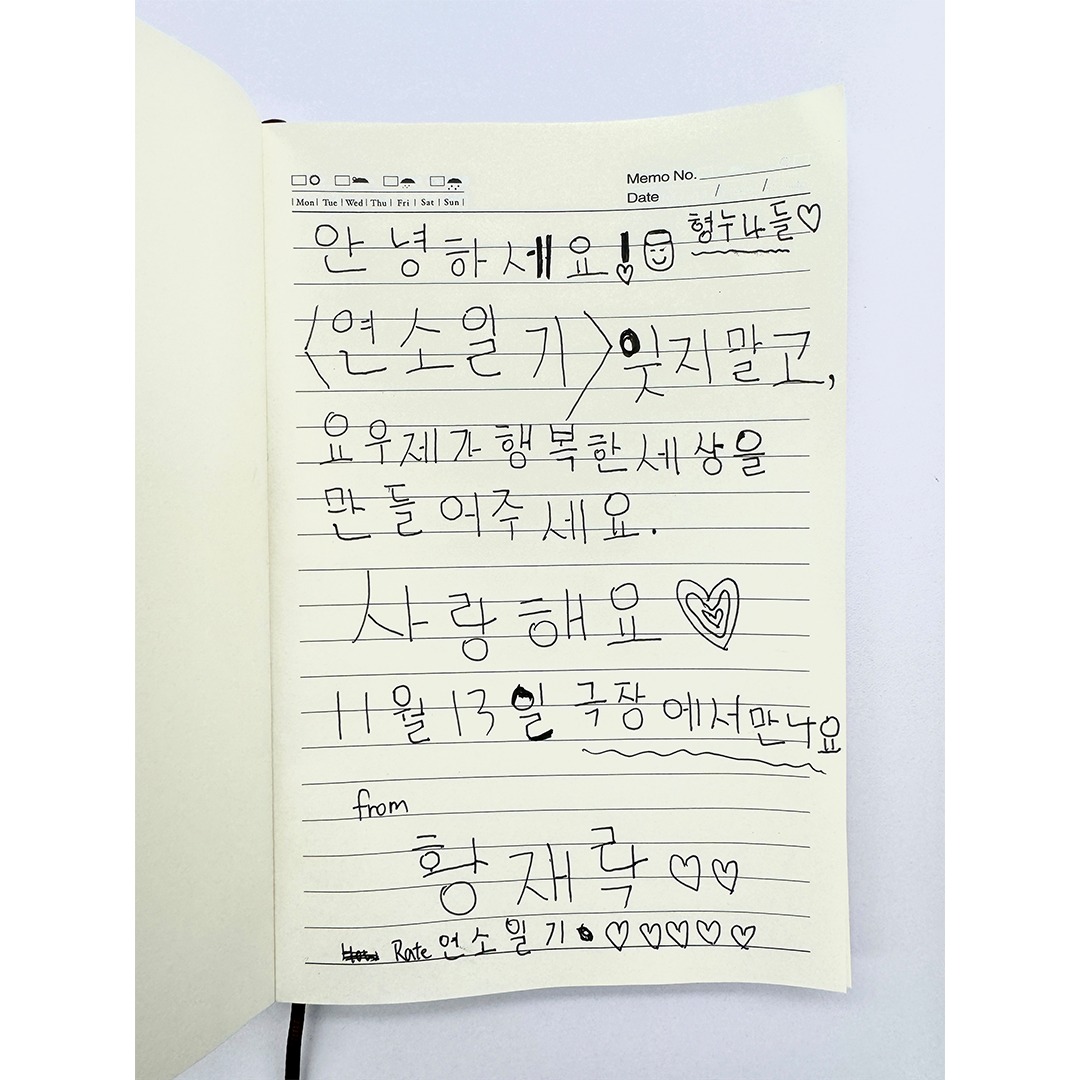 Memo No.
Mon Tue Wed Thu Fri Sat Sun
Date / /
안녕하세요! 형누나들♡
<연소일기> 잊지말고,
요우제가 행복한세상을
만들어주세요.
사랑해요
11월 13일 극장에서만나요
from
황재락 ♡♡
Rate 연소일기 ♡♡♡♡♡